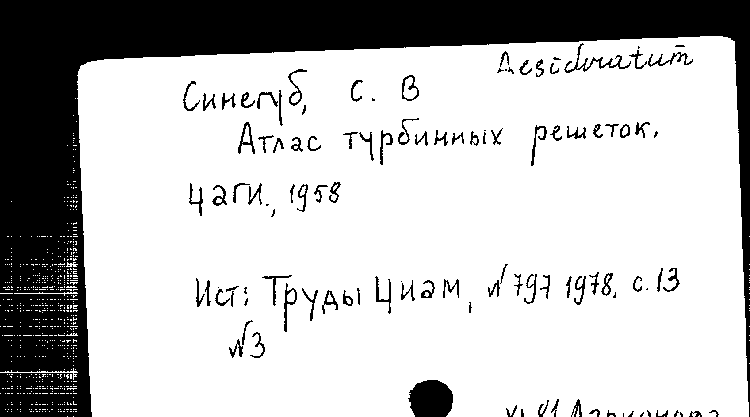 Desideratum
Синегуб, С. В
Атлас турбинных решеток.
ЦАГИ., 1958
Ист: Труды ЦИАМ, №797 1978. с.13
№3